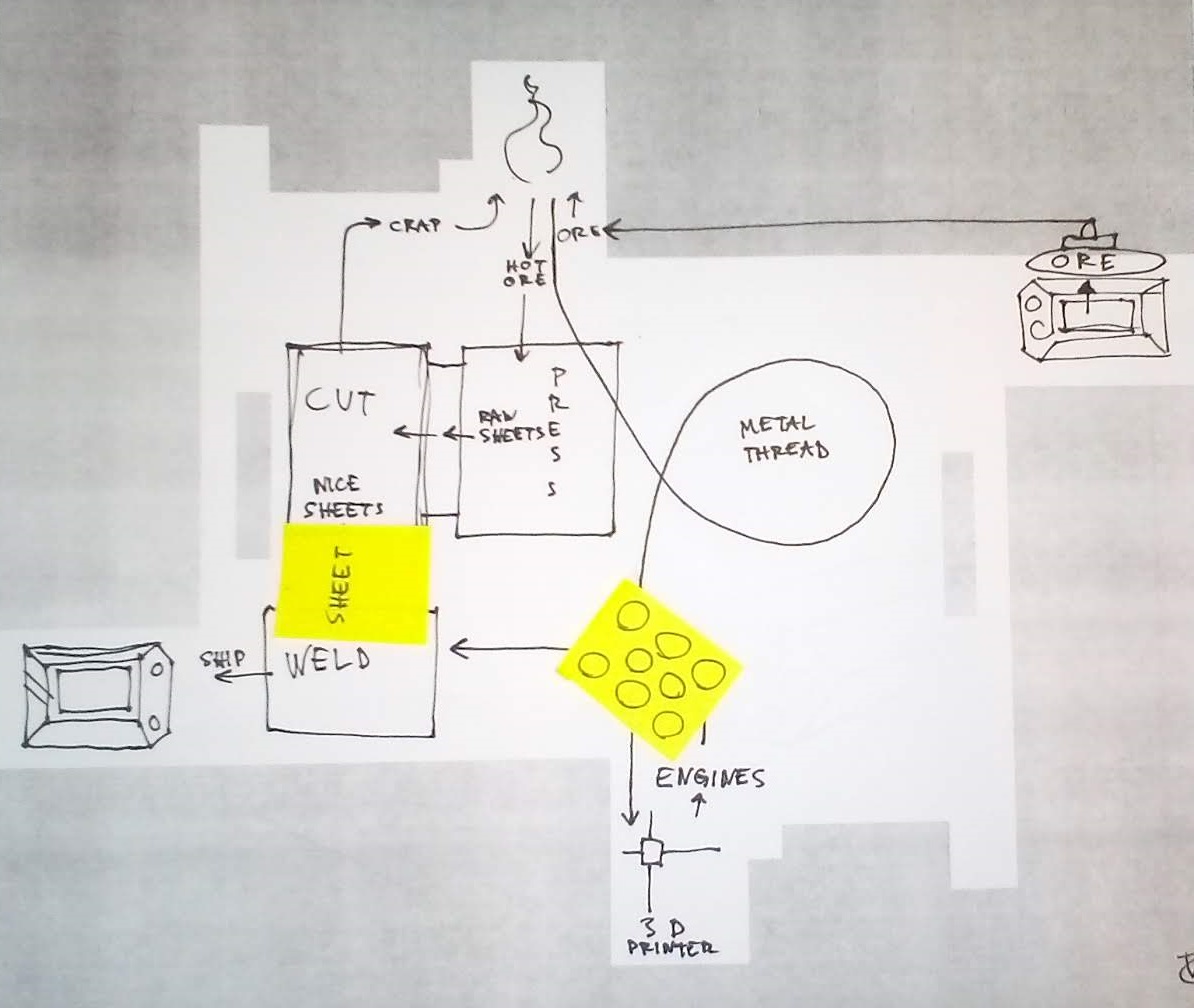 CRAP
ORE
HOT
ORE
ORE
CUT
RAW
SHEETS
PRESS
METAL
THREAD
NICE
SHEETS
SHEET
SHIP
WELD
ENGINES
3D
PRINTER